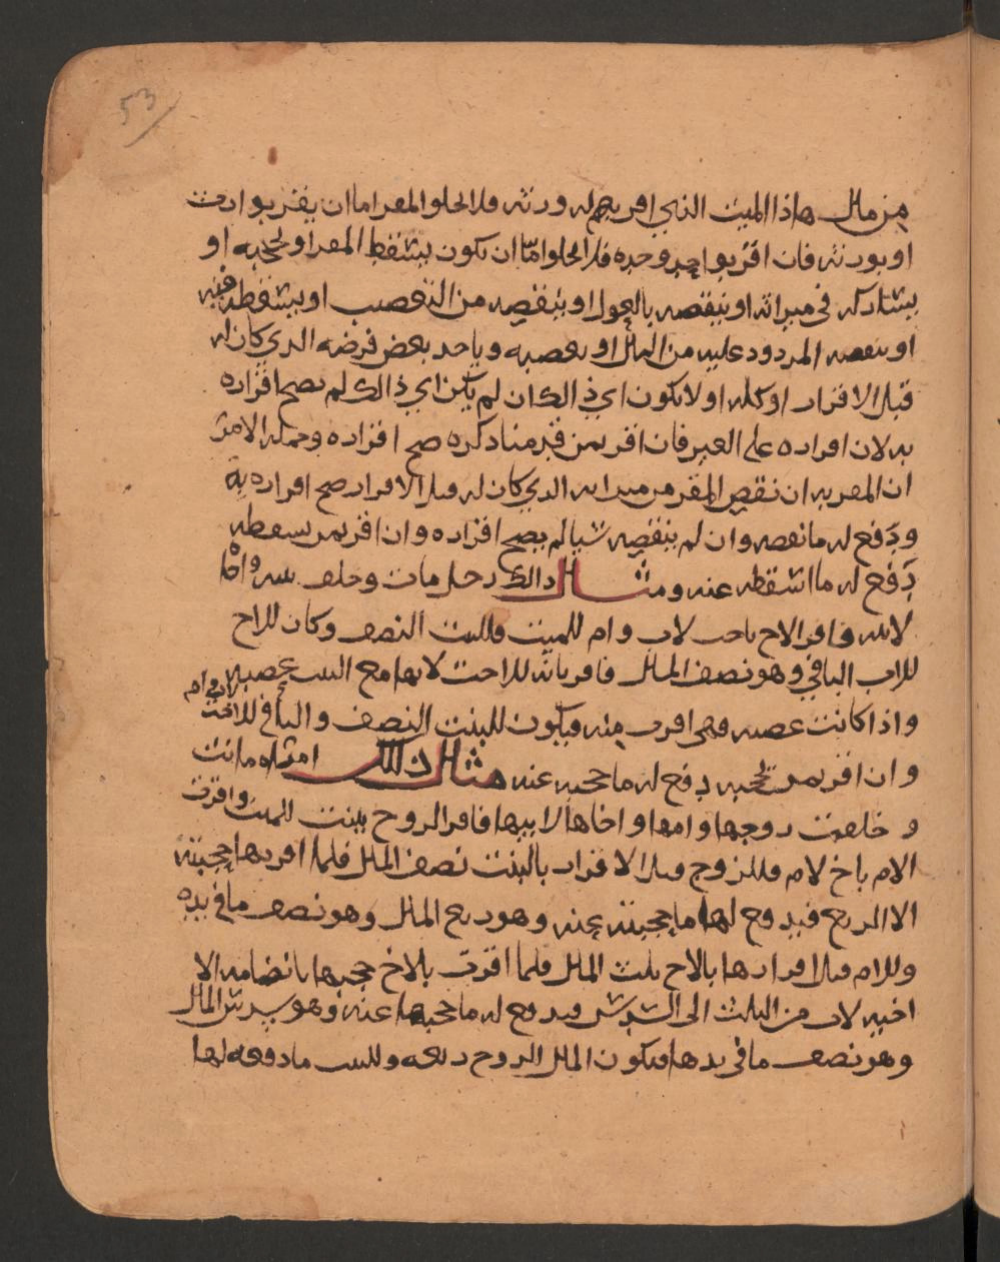 53
من مال هاذا الميت الذي اقر بهم له ورثه فلا يخلوا المقر اما ان يقر بوارث
او بورثه فان اقر بواحد وحده فلا يخلوا اما ان يكون يسقط المقر او يحجبه او
يشاركه في ميراثه او ينقصه بالعول او ينقصه من التعصيب او يسقطه فيه
او ينقصه المردود عليه من المال او يعصبه وياخذ بعض فرضه الذي كان له
قبل الاقرار او كله او لا يكون اي ذالك ان لم يكن اي ذالك لم يصح اقراره
به لان اقراره على الغير فان اقر بمن قدمنا ذكره صح اقراره وجملة الامر
ان المقر به ان نقص المقر من ميراثه الذي كان له قبل الاقرار صح اقراره به
ودفع له ما نقصه وان لم ينقصه شيا لم يصح اقراره وان اقر بمن يسقطه
دفع له ما اسقطه عنه ومثال ذالك رجل مات وخلف بنته واخا
لابيه فاقر الاخ باخت لاب وام للميت فللبنت النصف وكان للاخ
للاب الباقي وهو نصف المال فاقر بانه للاخت لانها مع البنت عصبه
واذا كانت عصبه فهي اقرب منه فيكون للبنت النصف والباقي للاخت
لاب وام
وان اقر بمن يحجبه دفع له ما حجبه عنه مثال ذلك امراه ماتت
وخلفت زوجها وامها واخاها لابيها فاقر الزوج ببنت للميت واقرت
الام باخ لام فللزوج قبل الاقرار بالبنت نصف المال فلما اقر بها حجبته
الا الربع فيدفع لها ما حجبته عنه وهو ربع المال وهو نصف ما في يده
وللام قبل اقرارها بالاخ ثلث المال فلما اقرت بالاخ حجبها بانضامه الا
اخيه لاب من الثلث الى السدس فيدفع له ما حجبها عنه وهو سدس المال
وهو نصف ما في يدها فيكون المال الزوج ربعه وللبنت ما دفعه لها